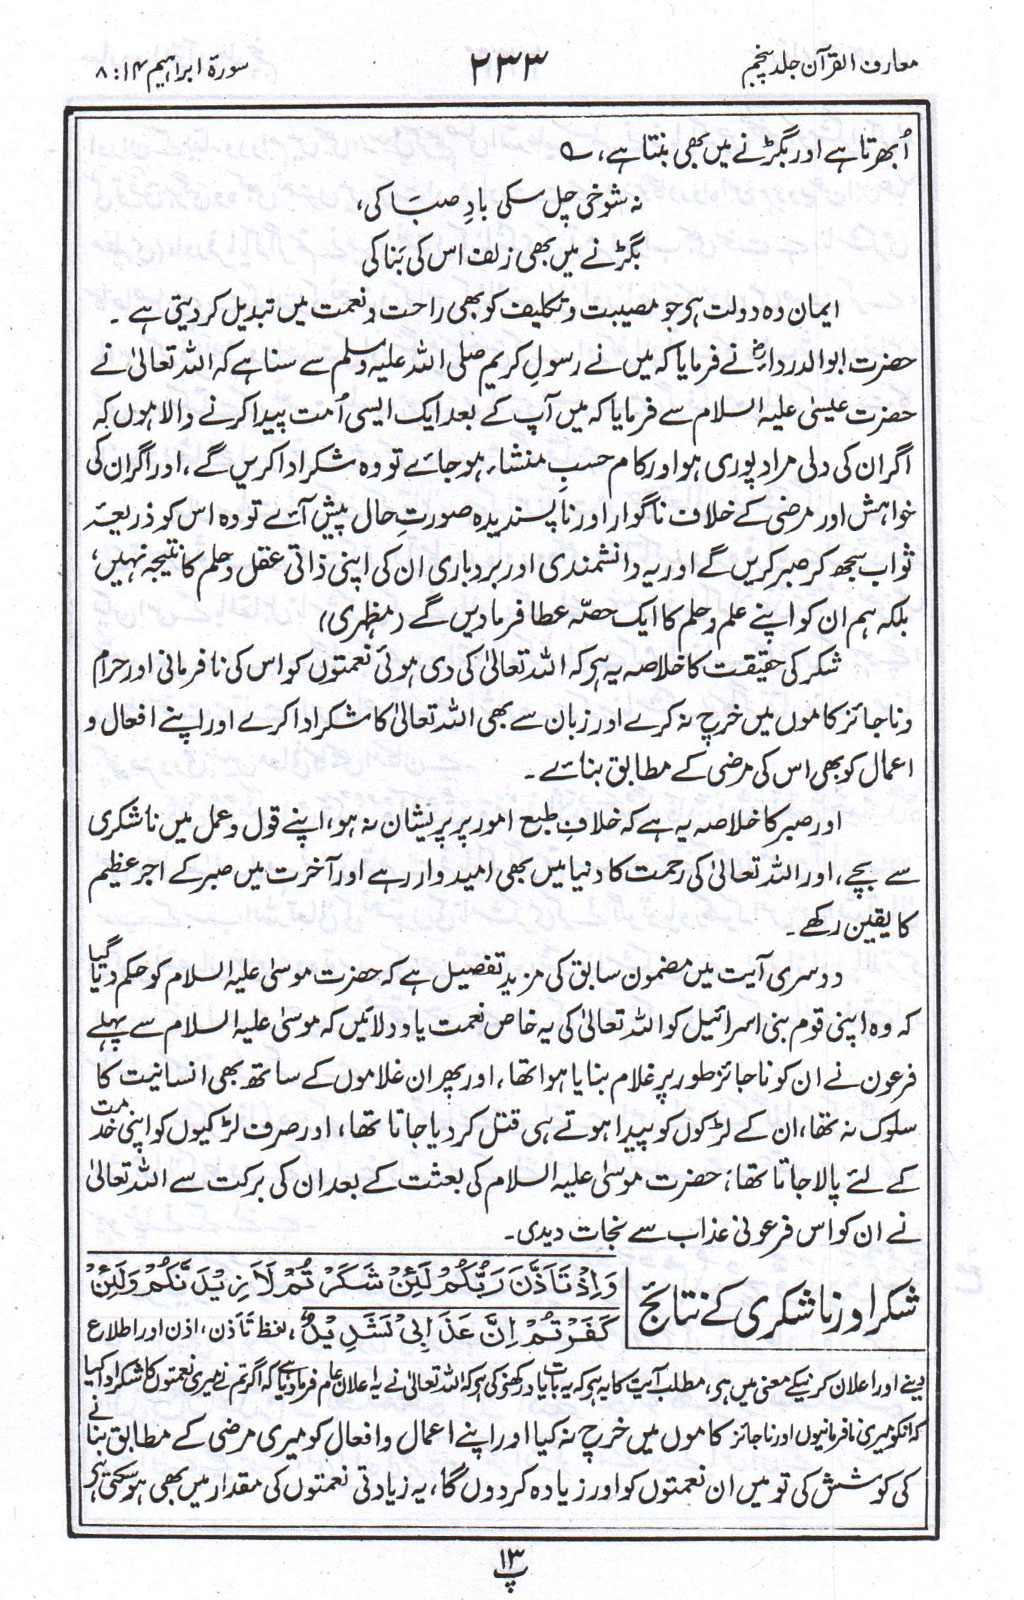 معارف القرآن جلد پنجم
۲۳۳
سورۃ ابراہیم ۱۴: ۸
اُبھرتا ہے اور بگڑنے میں بھی بنتا ہے، ؎
نہ شوخی چل سکی بادِ صبَا کی،
بگڑنے میں بھی زلف اس کی بَنا کی
ایمان وہ دولت ہی جو مصیبت و تکلیف کو بھی راحت و نعمت میں تبدیل کر دیتی ہے ۔
حضرت ابوالدرداءؓ نے فرمایا کہ میں نے رسولِ کریم صلی اللہ علیہ وسلم سے سنا ہے کہ اللہ تعالیٰ نے
حضرت عیسیٰ علیہ السلام سے فرمایا کہ میں آپ کے بعد ایک ایسی اُمت پیدا کرنے والا ہوں کہ
اگر ان کی دلی مراد پوری ہو اور کام حسبِ منشاء ہو جائے تو وہ شکر ادا کریں گے، اور اگر ان کی
خواہش اور مرضی کے خلاف ناگوار اور ناپسندیدہ صورتِ حال پیش آئے تو وہ اس کو ذریعہ
ثواب سمجھ کر صبر کریں گے اور یہ دانشمندی اور بردباری ان کی اپنی ذاتی عقل و حلم کا نتیجہ نہیں،
بلکہ ہم ان کو اپنے علم و حلم کا ایک حصّہ عطا فرمادیں گے (مظہری)
شکر کی حقیقت کا خلاصہ یہ ہی کہ اللہ تعالیٰ کی دی ہوئی نعمتوں کو اس کی نافرمانی اور حرام
و ناجائز کاموں میں خرچ نہ کرے اور زبان سے بھی اللہ تعالیٰ کا شکر ادا کرے اور اپنے افعال و
اعمال کو بھی اس کی مرضی کے مطابق بنائے ۔
اور صبر کا خلاصہ یہ ہے کہ خلافِ طبع امور پر پریشان نہ ہو، اپنے قول و عمل میں ناشکری
سے بچے، اور اللہ تعالیٰ کی رحمت کا دنیا میں بھی امیدوار رہے اور آخرت میں صبر کے اجر عظیم
کا یقین رکھے ۔
دوسری آیت میں مضمون سابق کی مزید تفصیل ہے کہ حضرت موسیٰ علیہ السلام کو حکم دیا گیا
کہ وہ اپنی قوم بنی اسرائیل کو اللہ تعالیٰ کی یہ خاص نعمت یاد دلائیں کہ موسیٰ علیہ السلام سے پہلے
فرعون نے ان کو ناجائز طور پر غلام بنایا ہوا تھا، اور پھر ان غلاموں کے ساتھ بھی انسانیت کا
سلوک نہ تھا، ان کے لڑکوں کو پیدا ہوتے ہی قتل کر دیا جاتا تھا، اور صرف لڑکیوں کو اپنی خدمت
کے لئے پالا جاتا تھا، حضرت موسیٰ علیہ السلام کی بعثت کے بعد ان کی برکت سے اللہ تعالیٰ
نے ان کو اس فرعونی عذاب سے نجات دیدی۔
شکر اور ناشکری کے نتائج
وَاِذْ تَاَذَّنَ رَبُّكُمْ لَئِنْ شَكَرْ تُمْ لَاَ زِيْدَنَّكُمْ وَلَئِنْ
كَفَرْتُمْ اِنَّ عَذَابِىْ لَشَدِيْدٌ، لفظ تَاَذن، اذن اور اطلاع
دینے اور اعلان کرنیکے معنی میں ہی، مطلب آیت کا یہ ہی کہ یہ بات یاد رکھنے کی ہی کہ اللہ تعالیٰ نے یہ اعلان عام فرما دیا ہے کہ اگر تم نے میری نعمتوں کا شکر ادا کیا
کہ انکو میری نافرمانیوں اور ناجائز کاموں میں خرچ نہ کیا اور اپنے اعمال و افعال کو میری مرضی کے مطابق بنانے
کی کوشش کی تو میں ان نعمتوں کو اور زیادہ کر دوں گا، یہ زیادتی نعمتوں کی مقدار میں بھی ہو سکتی ہی
پ ۱۳